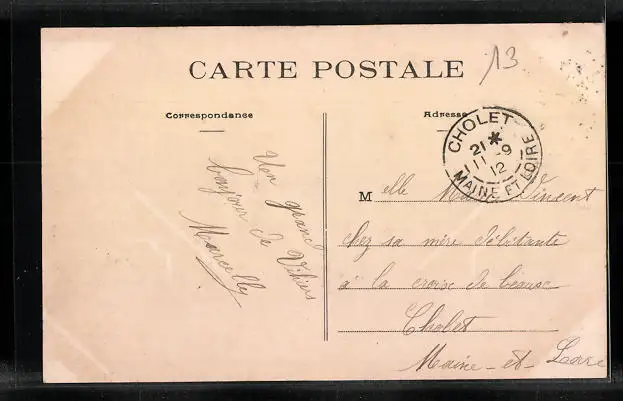 CARTE POSTALE
13
Correspondance
Adresse
CHOLET
21 * 9
12
MAINE ET LOIRE
Un grand
bonjour de Vihiers
Marcelly
Melle Vincent
chez sa mère débitante
à la croix de beause
Cholet
Maine-et-Loire